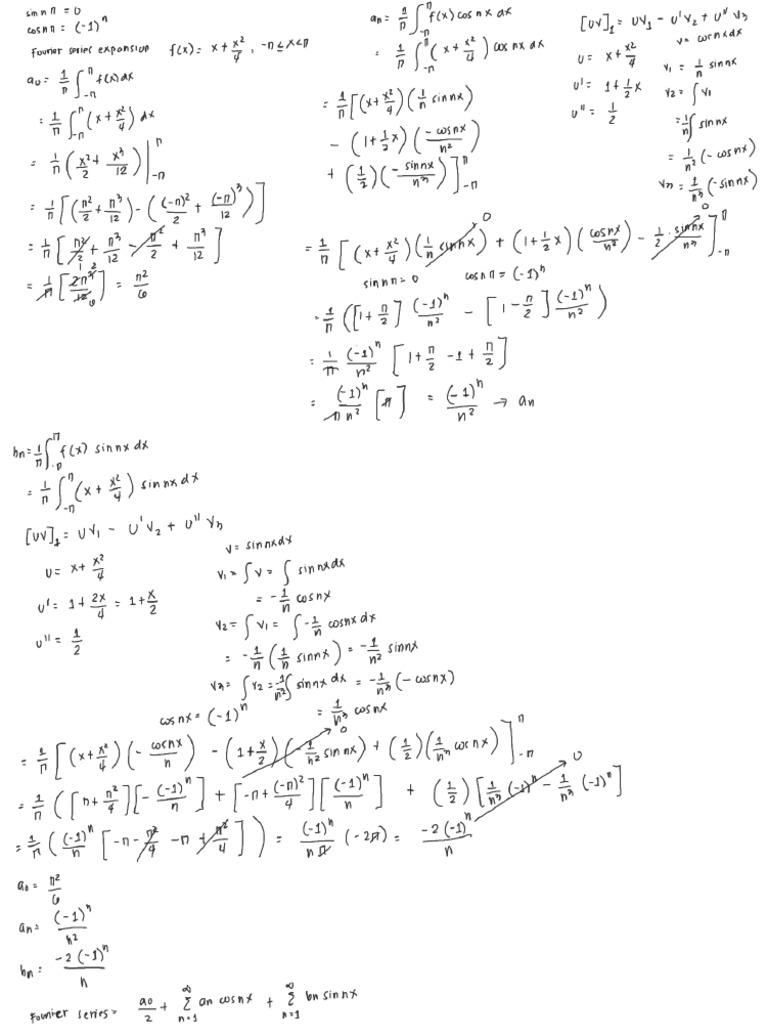 sin n π = 0
cos n π = (-1)^n
Fourier series expansion f(x) = x + x²/4, -π ≤ x < π
a₀ = 1/π ∫_{-π}^{π} f(x) dx
= 1/π ∫_{-π}^{π} (x + x²/4) dx
= 1/π (x²/2 + x³/12) |_{-π}^{π}
= 1/π [(π²/2 + π³/12) - ((-π)²/2 + (-π)³/12)]
= 1/π [π²/2 + π³/12 - π²/2 + π³/12]
= 1/π [2π³/12] = π²/6
aₙ = 1/π ∫_{-π}^{π} f(x) cos nx dx
= 1/π ∫_{-π}^{π} (x + x²/4) cos nx dx
= 1/π [(x + x²/4)(1/n sin nx)
- (1 + 1/2 x)(-cos nx/n²)
+ (1/2)(-sin nx/n³)]_{-π}^{π}
[UV]₁ = UV₁ - U'V₂ + U''V₃
U = x + x²/4
U' = 1 + 1/2 x
U'' = 1/2
V = cos nx dx
V₁ = 1/n sin nx
V₂ = ∫ V₁
= 1/n ∫ sin nx
= 1/n² (-cos nx)
V₃ = 1/n³ (-sin nx)
= 1/π [(x + x²/4)(1/n sin nx) 0 + (1 + 1/2 x)(cos nx/n²) - 1/2 · sin nx/n³ 0]_{-π}^{π}
sin n π = 0 cos n π = (-1)^n
= 1/π ([1 + π/2] (-1)^n/n² - [1 - π/2] (-1)^n/n²)
= 1/π (-1)^n/n² [1 + π/2 - 1 + π/2]
= (-1)^n/πn² [π] = (-1)^n/n² → aₙ
bₙ = 1/π ∫_{-π}^{π} f(x) sin nx dx
= 1/π ∫_{-π}^{π} (x + x²/4) sin nx dx
[UV]₁ = UV₁ - U'V₂ + U''V₃
U = x + x²/4
U' = 1 + 2x/4 = 1 + x/2
U'' = 1/2
V = sin nx dx
V₁ = ∫ V = ∫ sin nx dx
= -1/n cos nx
V₂ = ∫ V₁ = ∫ -1/n cos nx dx
= -1/n (1/n sin nx) = -1/n² sin nx
V₃ = ∫ V₂ = -1/n² ∫ sin nx dx = -1/n³ (-cos nx)
= 1/n³ cos nx
cos nx = (-1)^n
= 1/π [(x + x²/4)(-cos nx/n) - (1 + x/2)(-1/n² sin nx) 0 + (1/2)(1/n³ cos nx)]_{-π}^{π}
= 1/π ([π + π²/4][-(-1)^n/n] + [-π + (-π)²/4][(-1)^n/n] + (1/2)[1/n³ (-1)^n - 1/n³ (-1)^n] 0
= 1/π ((-1)^n/n [-π - π²/4 - π + π²/4]) = (-1)^n/nπ (-2π) = -2(-1)^n/n
a₀ = π²/6
aₙ = (-1)^n/n²
bₙ = -2(-1)^n/n
Fourier series = a₀/2 + ∑_{n=1}^{∞} aₙ cos nx + ∑_{n=1}^{∞} bₙ sin nx